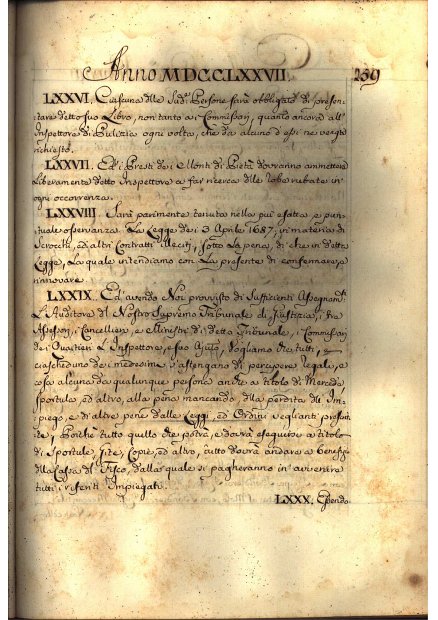 Anno MDCCLXXVII. 239
LXXVI. Ciascuna delle Sud.e Persone sarà obbligata di presen-
tare detto suo Libro, non tanto a i Commissari, quanto ancora all'
Inspettore di Pulizia ogni volta, che da alcuno d'essi ne venga
richiesto.
LXXVII. Ed i Presti de i Monti di Pietà dovranno ammettere
Liberamente detto Inspettore a far ricerca delle robe rubate in
ogni occorrenza.
LXXVIII. Sarà parimente tenuta nella più esatta e pun-
tuale osservanza La Legge de i 3 Aprile 1687, in materia di
Scrocchi, ed altri Contratti illeciti, sotto La pena, di che in detta
Legge, La quale intendiamo con La presente di confermare, e
rinnovare.
LXXIX. Ed avendo Noi provvisto di sufficienti Assegnam.ti
L'Auditore del Nostro Supremo Tribunale di Justizia, i tre
Assessori, i Cancellieri, e Ministri di detto Tribunale, i Commissari
de i Quartieri L'Inspettore, e suo Ajuto, Vogliamo che tutti, e
ciascheduno de i medesimi s'astengano di percipere regali, e
cosa alcuna da qualunque persona anche a titolo di Mercede,
sportula, ed altro, alla pena mancando, della perdita dell'Im-
piego, e di altre pene dalle Leggi, ed Ordini veglianti prescrit-
te, Poichè tutto quello che potrà, e dovrà esequirsi a titolo
di Sportule, Copie, ed altro, tutto dovrà andare a benefizio
della Cassa del Fisco, dalla quale si pagheranno in avvenire
tutti i riferiti Impiegati.
LXXX. Essendo